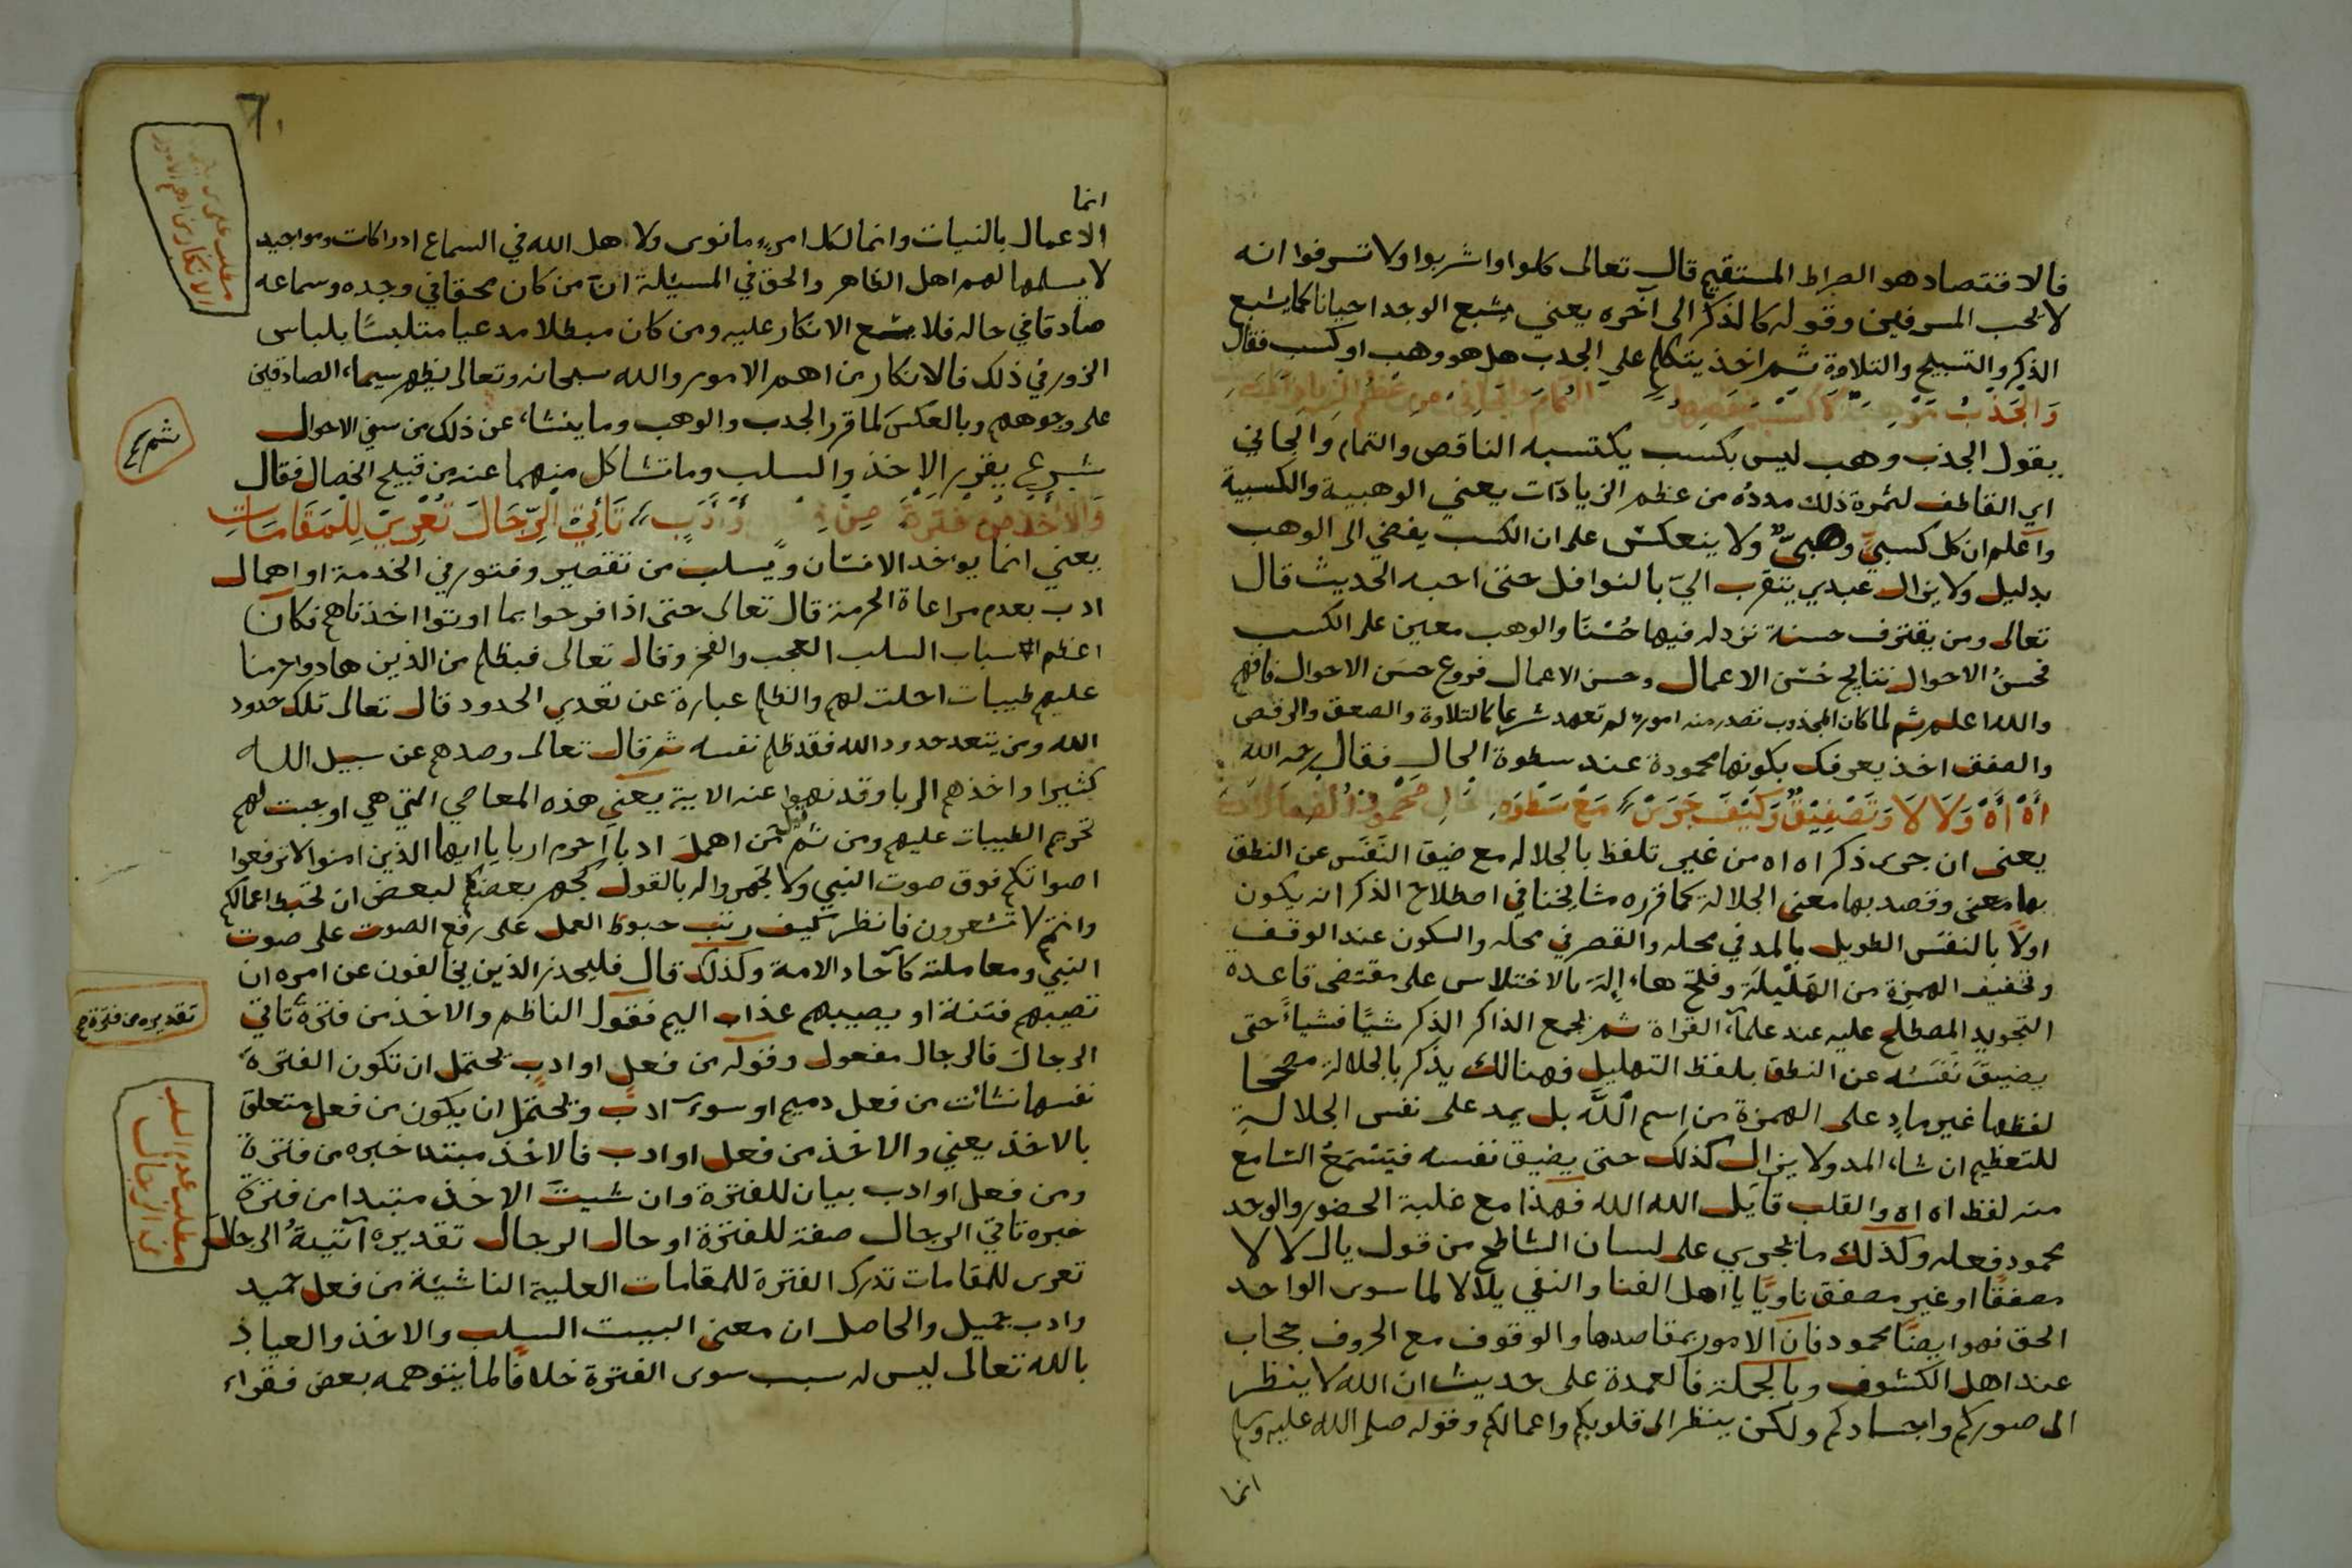 فالاقتصاد هو الصراط المستقيم قال تعالى كلوا واشربوا ولا تسرفوا انه
لا يحب المسرفين وقوله كالذكر الى آخره يعني يشبع الوجد احيانا كما يشبع
الذكر والتسبيح والتلاوة ثم اخذ يتكلم على الجدب هل هو وهب او كسب فقال
وَالجَذْبُ من عظم
يقول الجذب وهب ليس بكسب يكتسبه الناقص والتمام والجاني
اي القاطف لثمرة ذلك مدده من عظم الزيادات يعني الوهبية والكسبية
واعلم ان كل كسبيٍّ وهبيٌّ ولا ينعكس على ان الكسب يفضي الى الوهب
بدليل ولا يزال عبدي يتقرب اليّ بالنوافل حتى احبه الحديث قال
تعالى ومن يقترف حسنة نزد له فيها حُسْنًا والوهب معين على الكسب
فحسنُ الاحوال نتايج حُسْن الاعمال وحسن الاعمال فروع حسن الاحوال فافهم
والله اعلم ثم لما كان المجذوب تصدر منه امور لم تعهد شرعا كالتلاوة والصعق والرقص
والصفق اخذ يعرفك بكونها محمودة عند سطوة الحال فقال رحمه الله
اهْ اهْ وَلَا لَا وَتَصْفِيْقٌ وَكَيْفَ جَرَسْ مَعْ سَطْوَةِ الحَالِ مَحْمُودُ
يعنى ان جرى ذكر اه اه من غير تلفظ بالجلاله مع ضيق النَّفَس عن النطق
بها معنى وقصد بها معنى الجلالة كما قرره مشايخنا في اصطلاح الذكر انه يكون
اولاً بالنفس الطويل بالمد في محله والقصر في محله والسكون عند الوقف
وتخفيف الهمزة من الهَيْلَلَة وفتح هاء إلهَ بالاختلاس على مقتضى قاعدة
التجويد المصطلح عليه عند علماء القراة ثم يجمع الذاكر الذكر شيًا فشياءً حتى
يضيق نَفَسُه عن النطق بلفظ التهليل فهنالك يذكر بالجلالة مصححا
لفظها غير مادٍ على الهمزة من اسم اللَّه بل يمد على نفس الجلالةِ
للتعظيم ان شاء المد ولا يزال كذلك حتى يضيق نفسه فيَسْمَعُ السّامع
منه لفظ اه اه والقلب قايل الله الله فهذا مع غلبة الحضور والوجد
محمود فعله وكذلك ما يجري على لسان الشاطح من قول يال لا لا
مصفقًا او غير مصفق ناويًا يا اهل الفنا والنفي بلا لا لما سوى الواحد
الحق فهو ايضًا محمود فان الامور بمقاصدها والوقوف مع الحروف حجاب
عند اهل الكشوف وبالجملة فالعمدة على حديث ان الله لا ينظر
الى صوركم واجسادكم ولكن ينظر الى قلوبكم واعمالكم وقوله صلى الله عليه وسلم
انما
انما
الاعمال بالنيات وانما لكل امرء ما نوى ولاهل الله في السماع ادراكات ومواجيد
لا يسلمها لهم اهل الظاهر والحق في المسئلة انّ من كان محقا في وجده وسماعه
صادقا في حاله فلا يسع الانكار عليه ومن كان مبطلا مدعيا متلبسًا بلباس
الزور في ذلك فالانكار من اهم الامور والله سبحانه وتعالى يظهر سيماء الصادقين
على وجوههم وبالعكس لما قرر الجدب والوهب وما ينشاء عن ذلك من سني الاحوال
شرع يقرر الاخذ والسلب وما تشاكل منهما عنه من قبيح الخصال فقال
وَالأَخْذُ مِنْ فَترَةٍ مِنْ أَوْ أَدَبٍ تَأْتِي الرِّجَالَ تُعْرِيْ لِلمَقَامَاتِ
يعني انما يوخد الانسان ويُسلب من تقصير وفتور في الخدمة او اهمال
ادب بعدم مراعاة الحرمة قال تعالى حتى اذا فرحوا بما اوتوا اخذناهم فكان
اعظم اسباب السلب العجب والفخر وقال تعالى فبظلم من الذين هادوا حرمنا
عليهم طيبات احلت لهم والظلم عبارة عن تعدي الحدود قال تعالى تلك حدود
الله ومن يتعد حدود الله فقد ظلم نفسه ثم قال تعالى وصدهم عن سبيل الله
كثيرا واخذهم الربا وقد نهوا عنه الاية يعني هذه المعاصي التي هي اوجبت لهم
تحريم الطيبات عليهم ومن ثَمّ قيل من اهملَ ادبا احرم اربا يا ايها الذين امنوا لا ترفعوا
اصواتكم فوق صوت النبي ولا تجهروا له بالقول كجهر بعضكم لبعض ان تحبط اعمالكم
وانتم لا تشعرون فانظر كيف رتب حبوط العمل على رفع الصوت على صوت
النبي ومعاملته كآحاد الامة وكذلك قال فليحذر الذين يخالفون عن امره ان
تصيبهم فتنة او يصيبهم عذاب اليم فقول الناظم والاخذ من فترة تاتي
الرجال فالرجال مفعول وقوله من فعل او ادب يحتمل ان تكون الفترة
نفسها نشأت من فعل دميم او سوء ادب ويحتمل ان يكون من فعل متعلق
بالاخذ يعني والاخذ من فعل او ادب فالاخذ مبتدا خبره من فترة
ومن فعل او ادب بيان للفترة وان شيت الاخذ مبتدا من فترة
خبره تاتي الرجال صفة للفترة او حال الرجال تقديره آتيةُ الرجالَ
تعرى للمقامات تدرك الفترة للمقامات العلية الناشئة من فعل حميد
وادب جميل والحاصل ان معنى البيت السلب والاخذ والعياذ
بالله تعالى ليس له سبب سوى الفترة خلافًا لما يتوهمه بعض فقراء
مطلب على من
الانكار من اهم الامور
ثم
تقديره من فترة
مطلب عدم السلب
من الرجال